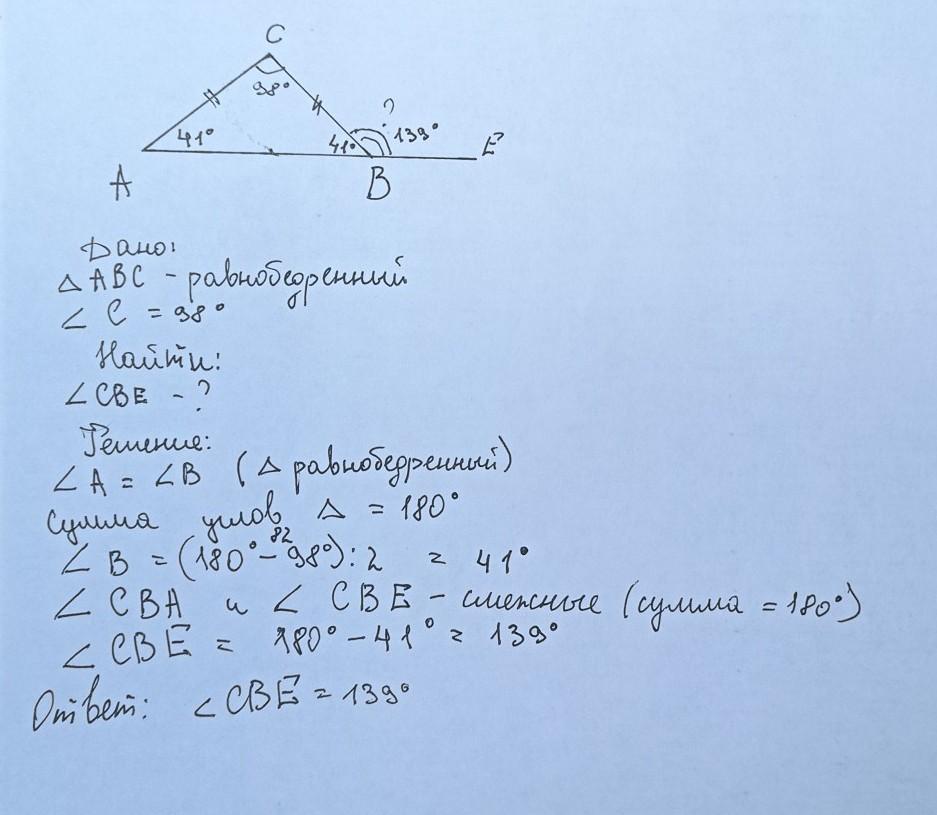 C
98°
?
41°
41°
139°
E
A
B
Дано:
△ ABC - равнобедренный
∠ C = 98°
Найти:
∠CBE - ?
Решение:
∠ A = ∠B (△ равнобедренный)
Сумма углов △ = 180°
82
∠ B = (180° - 98°) : 2 = 41°
∠ CBA и ∠ CBE - смежные (сумма = 180°)
∠ CBE = 180° - 41° = 139°
Ответ: ∠ CBE = 139°